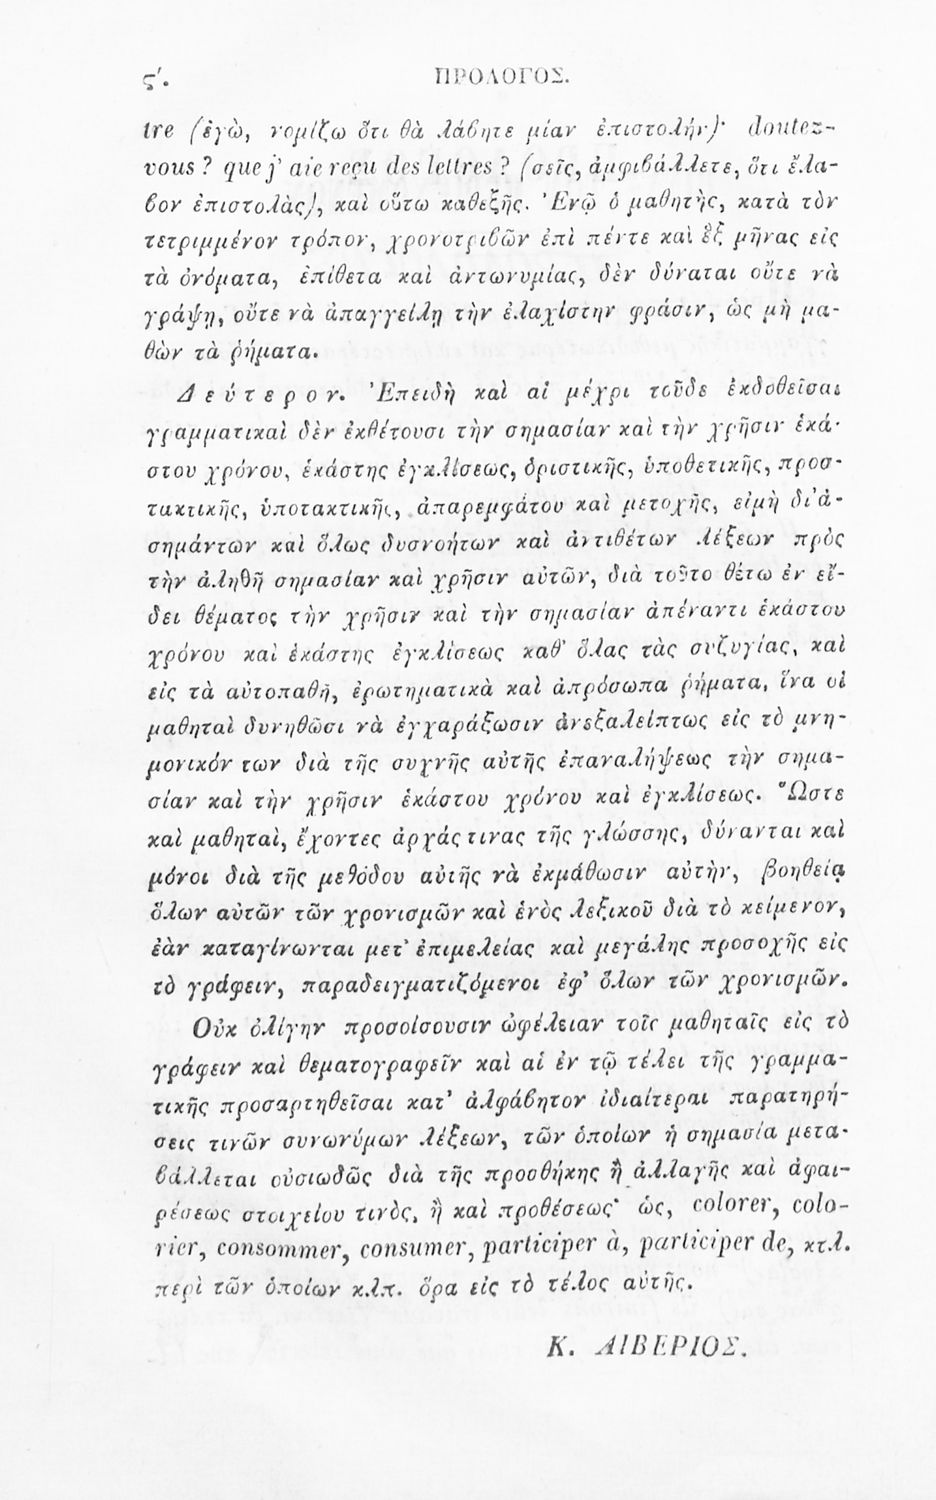 ς΄. ΠΡΟΛΟΓΟΣ.
tre (ἐγὼ, νομίζω ὅτι θὰ λάβητε μίαν ἐπιστολήν)· doutez-
vous ? que j' aie reçu des lettres ? (σεῖς, ἀμφιβάλλετε, ὅτι ἔλα-
βον ἐπιστολὰς), καὶ οὕτω καθεξῆς. Ἐνῷ ὁ μαθητὴς, κατὰ τὸν
τετριμμένον τρόπον, χρονοτριβῶν ἐπὶ πέντε καὶ ἓξ μῆνας εἰς
τὰ ὀνόματα, ἐπίθετα καὶ ἀντωνυμίας, δὲν δύναται οὔτε νὰ
γράψῃ, οὔτε νὰ ἀπαγγείλῃ τὴν ἐλαχίστην φράσιν, ὡς μὴ μα-
θὼν τὰ ῥήματα.
Δεύτερον. Ἐπειδὴ καὶ αἱ μέχρι τοῦδε ἐκδοθεῖσαι
γραμματικαὶ δὲν ἐκθέτουσι τὴν σημασίαν καὶ τὴν χρῆσιν ἑκά-
στου χρόνου, ἑκάστης ἐγκλίσεως, ὁριστικῆς, ὑποθετικῆς, προσ-
τακτικῆς, ὑποτακτικῆς, ἀπαρεμφάτου καὶ μετοχῆς, εἰμὴ δι᾽ ἀ-
σημάντων καὶ ὅλως δυσνοήτων καὶ ἀντιθέτων λέξεων πρὸς
τὴν ἀληθῆ σημασίαν καὶ χρῆσιν αὐτῶν, διὰ τοῦτο θέτω ἐν εἴ-
δει θέματος τὴν χρῆσιν καὶ τὴν σημασίαν ἀπέναντι ἑκάστου
χρόνου καὶ ἑκάστης ἐγκλίσεως καθ᾽ ὅλας τὰς συζυγίας, καὶ
εἰς τὰ αὐτοπαθῆ, ἐρωτηματικὰ καὶ ἀπρόσωπα ῥήματα, ἵνα οἱ
μαθηταὶ δυνηθῶσι νὰ ἐγχαράξωσιν ἀνεξαλείπτως εἰς τὸ μνη-
μονικόν των διὰ τῆς συχνῆς αὐτῆς ἐπαναλήψεως τὴν σημα-
σίαν καὶ τὴν χρῆσιν ἑκάστου χρόνου καὶ ἐγκλίσεως. Ὥστε
καὶ μαθηταὶ, ἔχοντες ἀρχάς τινας τῆς γλώσσης, δύνανται καὶ
μόνοι διὰ τῆς μεθόδου αὐτῆς νὰ ἐκμάθωσιν αὐτὴν, βοηθείᾳ
ὅλων αὐτῶν τῶν χρονισμῶν καὶ ἑνὸς λεξικοῦ διὰ τὸ κείμενον,
ἐὰν καταγίνωνται μετ᾽ ἐπιμελείας καὶ μεγάλης προσοχῆς εἰς
τὸ γράφειν, παραδειγματιζόμενοι ἐφ᾽ ὅλων τῶν χρονισμῶν.
Οὐκ ὀλίγην προσοίσουσιν ὠφέλειαν τοῖς μαθηταῖς εἰς τὸ
γράφειν καὶ θεματογραφεῖν καὶ αἱ ἐν τῷ τέλει τῆς γραμμα-
τικῆς προσαρτηθεῖσαι κατ᾽ ἀλφάβητον ἰδιαίτεραι παρατηρή-
σεις τινῶν συνωνύμων λέξεων, τῶν ὁποίων ἡ σημασία μετα-
βάλλεται οὐσιωδῶς διὰ τῆς προσθήκης ἢ ἀλλαγῆς καὶ ἀφαι-
ρέσεως στοιχείου τινὸς, ἢ καὶ προθέσεως· ὡς, colorer, colo-
rier, consommer, consumer, participer à, participer de, κτλ.
περὶ τῶν ὁποίων κλπ. ὅρα εἰς τὸ τέλος αὐτῆς.
Κ. ΛΙΒΕΡΙΟΣ.